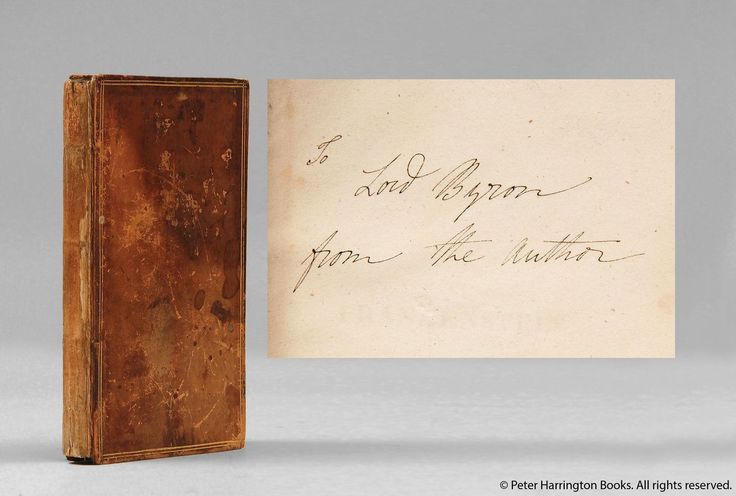 To
Lord Byron
from the author
© Peter Harrington Books. All rights reserved.